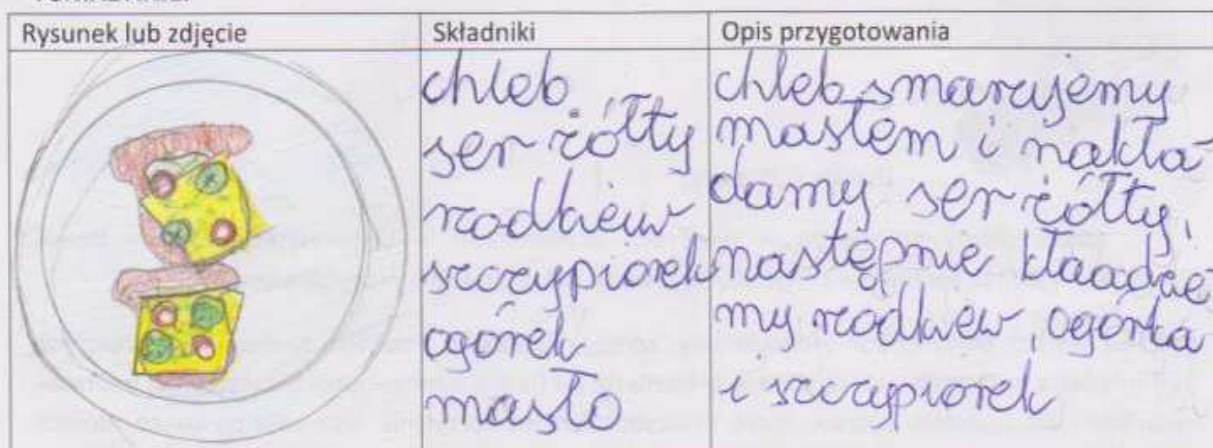 Rysunek lub zdjęcie
Składniki
Opis przygotowania
chleb
ser żółty
rzodkiew
szczypiorek
ogórek
masło
chleb smarujemy
masłem i nakła-
damy ser żółty,
następnie kłaadzie
my rzodkiew, ogórka
i szczypiorek